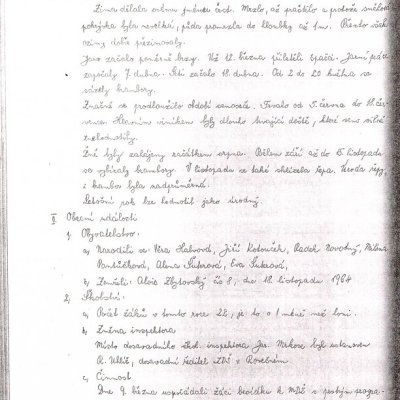 Zima dělala celkem jednu část. Mrzlo, až praštělo a protože sněhová
pokrývka byla nevelká, půda promrzla do hloubky až 1 m. Přesto však
oziny dobře přezimovaly.
Jaro začalo poměrně brzy. Už 12. března přiletěli špačci. Jarní práce
započaly 7. dubna. Setí začalo 18. dubna. Od 2 do 20 května se
sázely brambory.
Značně se prodloužilo období senoseče. Trvalo od 5. června do 18. čer-
vence. Hlavním viníkem byly dlouho trvající deště, které seno silně
znehodnotily.
Žně byly zahájeny začátkem srpna. Během září až do 15. listopadu
se vybíraly brambory. V listopadu se také sklízela řepa. Úroda řepy
i brambor byla nadprůměrná.
Letošní rok lze hodnotit jako úrodný.
II Obecní události
1) Obyvatelstvo.
a) Narodili se: Věra Habrová, Jiří Kotouček, Radek Novotný, Milena
Pantůčková, Alena Fuksová, Eva Fuksová,
b) Zemřeli: Alois Zbytovský čís 8, dne 18. listopadu 1964
2) Školství:
a) Počet žáků v tomto roce 22, je to o 1 méně než loni.
b) Změna inspektora
Místo dosavadního škol. inspektora Jar. Mrkose byl ustanoven
R. Uhlíř, dosavadní ředitel ZDŠ v
c) Činnost
Dne 9. března uspořádali žáci besídku k MDŽ s pestrým progra-